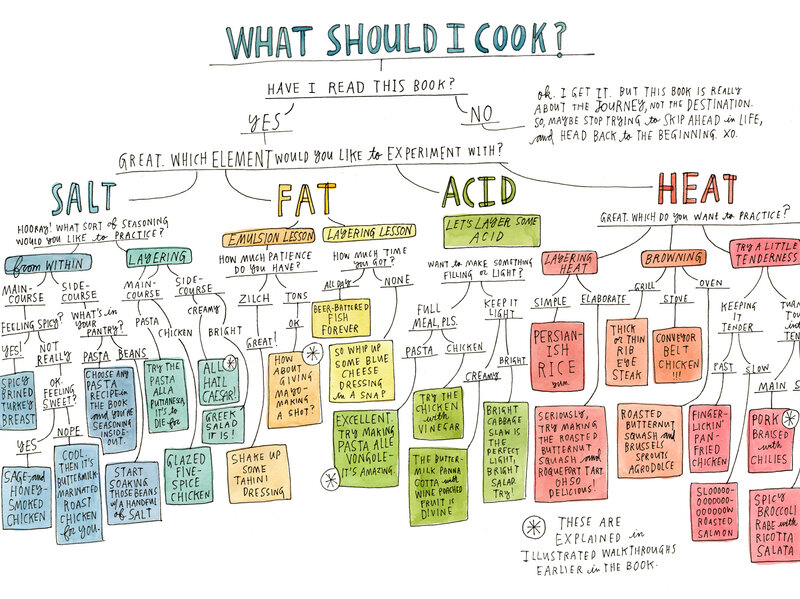 WHAT SHOULD I COOK?
HAVE I READ THIS BOOK?
YES
NO
OK. I GET IT. BUT THIS BOOK IS REALLY
ABOUT THE JOURNEY, NOT THE DESTINATION.
SO, MAYBE STOP TRYING to SKIP AHEAD in LIFE,
and HEAD BACK to THE BEGINNING. XO.
GREAT. WHICH ELEMENT WOULD YOU LIKE to EXPERIMENT WITH?
SALT
HOORAY! WHAT SORT of SEASONING
WOULD YOU LIKE to PRACTICE?
from WITHIN
MAIN-
COURSE
FEELING SPICY?
YES!
SPICY
BRINED
TURKEY
BREAST
NOT
REALLY
OK.
FEELING
SWEET?
YES
SAGE and
HONEY-
SMOKED
CHICKEN
NOPE
COOL
THEN IT'S
BUTTERMILK
MARINATED
ROAST
CHICKEN
for YOU.
SIDE-
COURSE
WHAT'S in
YOUR
PANTRY?
PASTA
CHOOSE ANY
PASTA
RECIPE in
THE BOOK
and YOU'RE
SEASONING
INSIDE-
OUT.
BEANS
START
SOAKING
THOSE BEANS
w/ A HANDFUL
of SALT
LAYERING
MAIN-
COURSE
PASTA
TRY THE
PASTA
ALLA
PUTTANESCA,
IT'S to
DIE for
CHICKEN
GLAZED
FIVE-
SPICE
CHICKEN
SIDE-
COURSE
CREAMY
ALL
HAIL
CAESAR!
BRIGHT
GREEK
SALAD
IT IS!
FAT
EMULSION LESSON
HOW MUCH PATIENCE
DO YOU HAVE?
ZILCH
GREAT!
SHAKE UP
SOME
TAHINI
DRESSING
TONS
OK
HOW
ABOUT
GIVING
MAYO-
MAKING
A SHOT?
LAYERING LESSON
HOW MUCH TIME
YOU GOT?
ALL DAY
BEER-BATTERED
FISH
FOREVER
NONE
SO WHIP UP
SOME BLUE
CHEESE
DRESSING
IN A SNAP
ACID
LET'S LAYER SOME
ACID
WANT to MAKE SOMETHING
FILLING or LIGHT?
FULL
MEAL, PLS.
PASTA
EXCELLENT.
TRY MAKING
PASTA ALLE
VONGOLE-
IT'S AMAZING.
CHICKEN
TRY THE
CHICKEN
with
VINEGAR
KEEP IT
LIGHT
CREAMY
THE BUTTER-
MILK PANNA
COTTA with
WINE POACHED
FRUIT IS
DIVINE
BRIGHT
BRIGHT
CABBAGE
SLAW IS
THE
PERFECT
LIGHT,
BRIGHT
SALAD.
TRY!
HEAT
GREAT. WHICH DO YOU WANT to PRACTICE?
LAYERING
HEAT
SIMPLE
PERSIAN-
ISH
RICE
yum
ELABORATE
SERIOUSLY,
TRY MAKING
THE ROASTED
BUTTERNUT
SQUASH and
ROQUEFORT TART
OH SO
DELICIOUS!
BROWNING
GRILL
THICK
or THIN
RIB
EYE
STEAK
STOVE
CONVEYOR
BELT
CHICKEN
!!!
OVEN
ROASTED
BUTTERNUT
SQUASH and
BRUSSELS
SPROUTS
AGRODOLCE
TRY A LITTLE
TENDERNESS
KEEPING
IT
TENDER
FAST
FINGER-
LICKIN' PAN-
FRIED
CHICKEN
SLOW
SLOOOOO-
OOOOOOO-
OOOOOOW
ROASTED
SALMON
MAIN
PORK
BRAISED
with
CHILIES
SPICY
BROCCOLI
RABE with
RICOTTA
SALATA
THESE ARE
EXPLAINED in
ILLUSTRATED WALKTHROUGHS
EARLIER in THE BOOK.